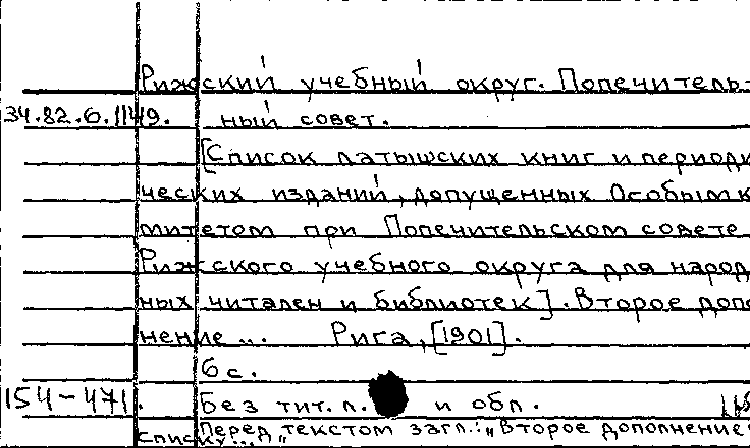 Рижский учебный округ. Попечитель-
34.82.6.1149. ный совет.
[Список латышских книг и периоди
ческих изданий, допущенных Особым к
митетом при Попечительском совете
Рижского учебного округа для народ
ных читален и библиотек]. Второе допо
нение... Рига, [1901].
6 с.
154-471. Без тит. л. и обл.
Перед текстом загл.: "Второе дополнение
списку..."